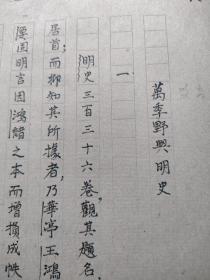 萬季野與明史
一
明史三百三十六卷，觀其題名，
居首；而抑知其所據者，乃華亭王鴻
屢因明言因鴻緒之本而增損成帙